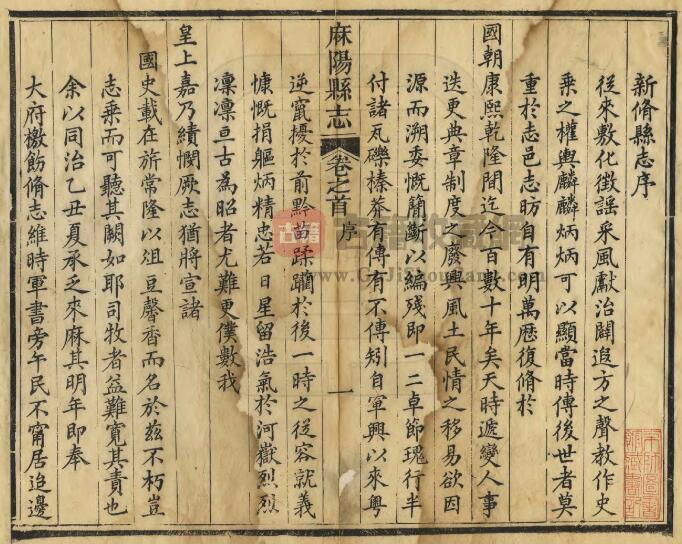 新脩縣志序
從來敷化徵謡采風獻治闢遐方之聲教作史
乘之權輿麟麟炳炳可以顯當時傳後世者莫
重於志邑志昉自有明萬歷復脩於
國朝康熙乾隆閒迄今百數十年矣天時遞變人事
迭更典章制度之廢興風土民情之移易欲因
源而溯委慨簡斷以編殘即一二卓節瑰行半
付諸瓦礫榛莽有傳有不傳矧自軍興以來粤
麻陽縣志 卷之首 序 一
逆竄擾於前黔苗蹂躪於後一時之從容就義
慷慨捐軀炳精忠若日星留浩氣於河嶽烈烈
凜凜亘古為昭者尤難更僕數我
皇上嘉乃績憫厥志猶將宣諸
國史載在旂常隆以俎豆馨香而名於兹不朽豈
志乘而可聽其闕如耶司牧者益難寬其責也
余以同治乙丑夏承乏來麻其明年即奉
大府檄飭脩志維時軍書旁午民不甯居迨邊
古籍